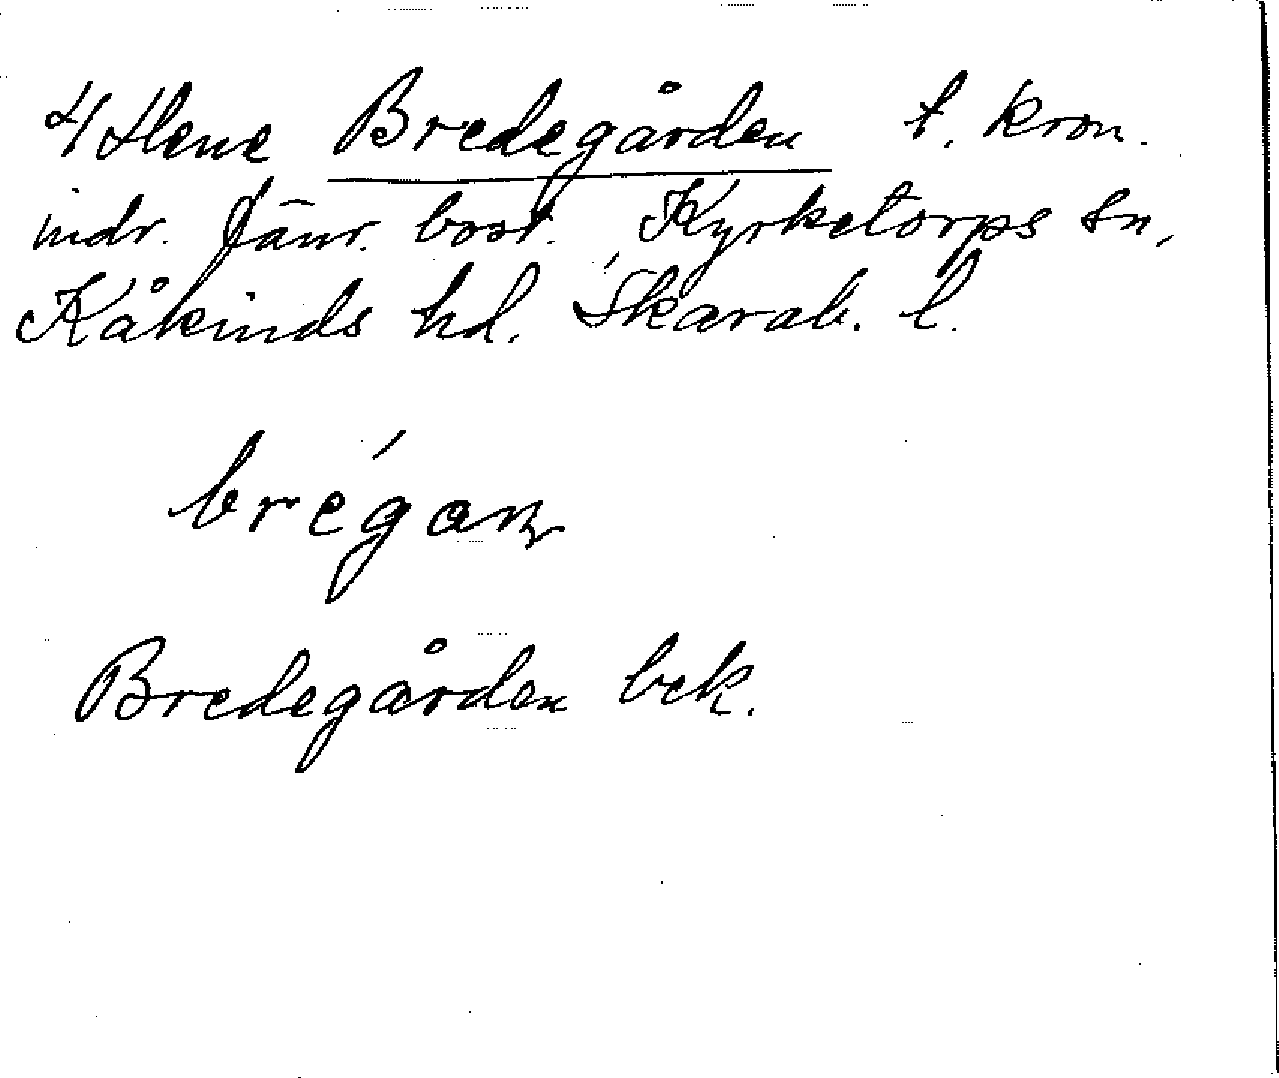 4 Hene Bredegården f. kron.
indr. fänr. bost. Kyrketorps sn,
Kåkinds hd. Skarab. l.
brégan
Bredegården bek.